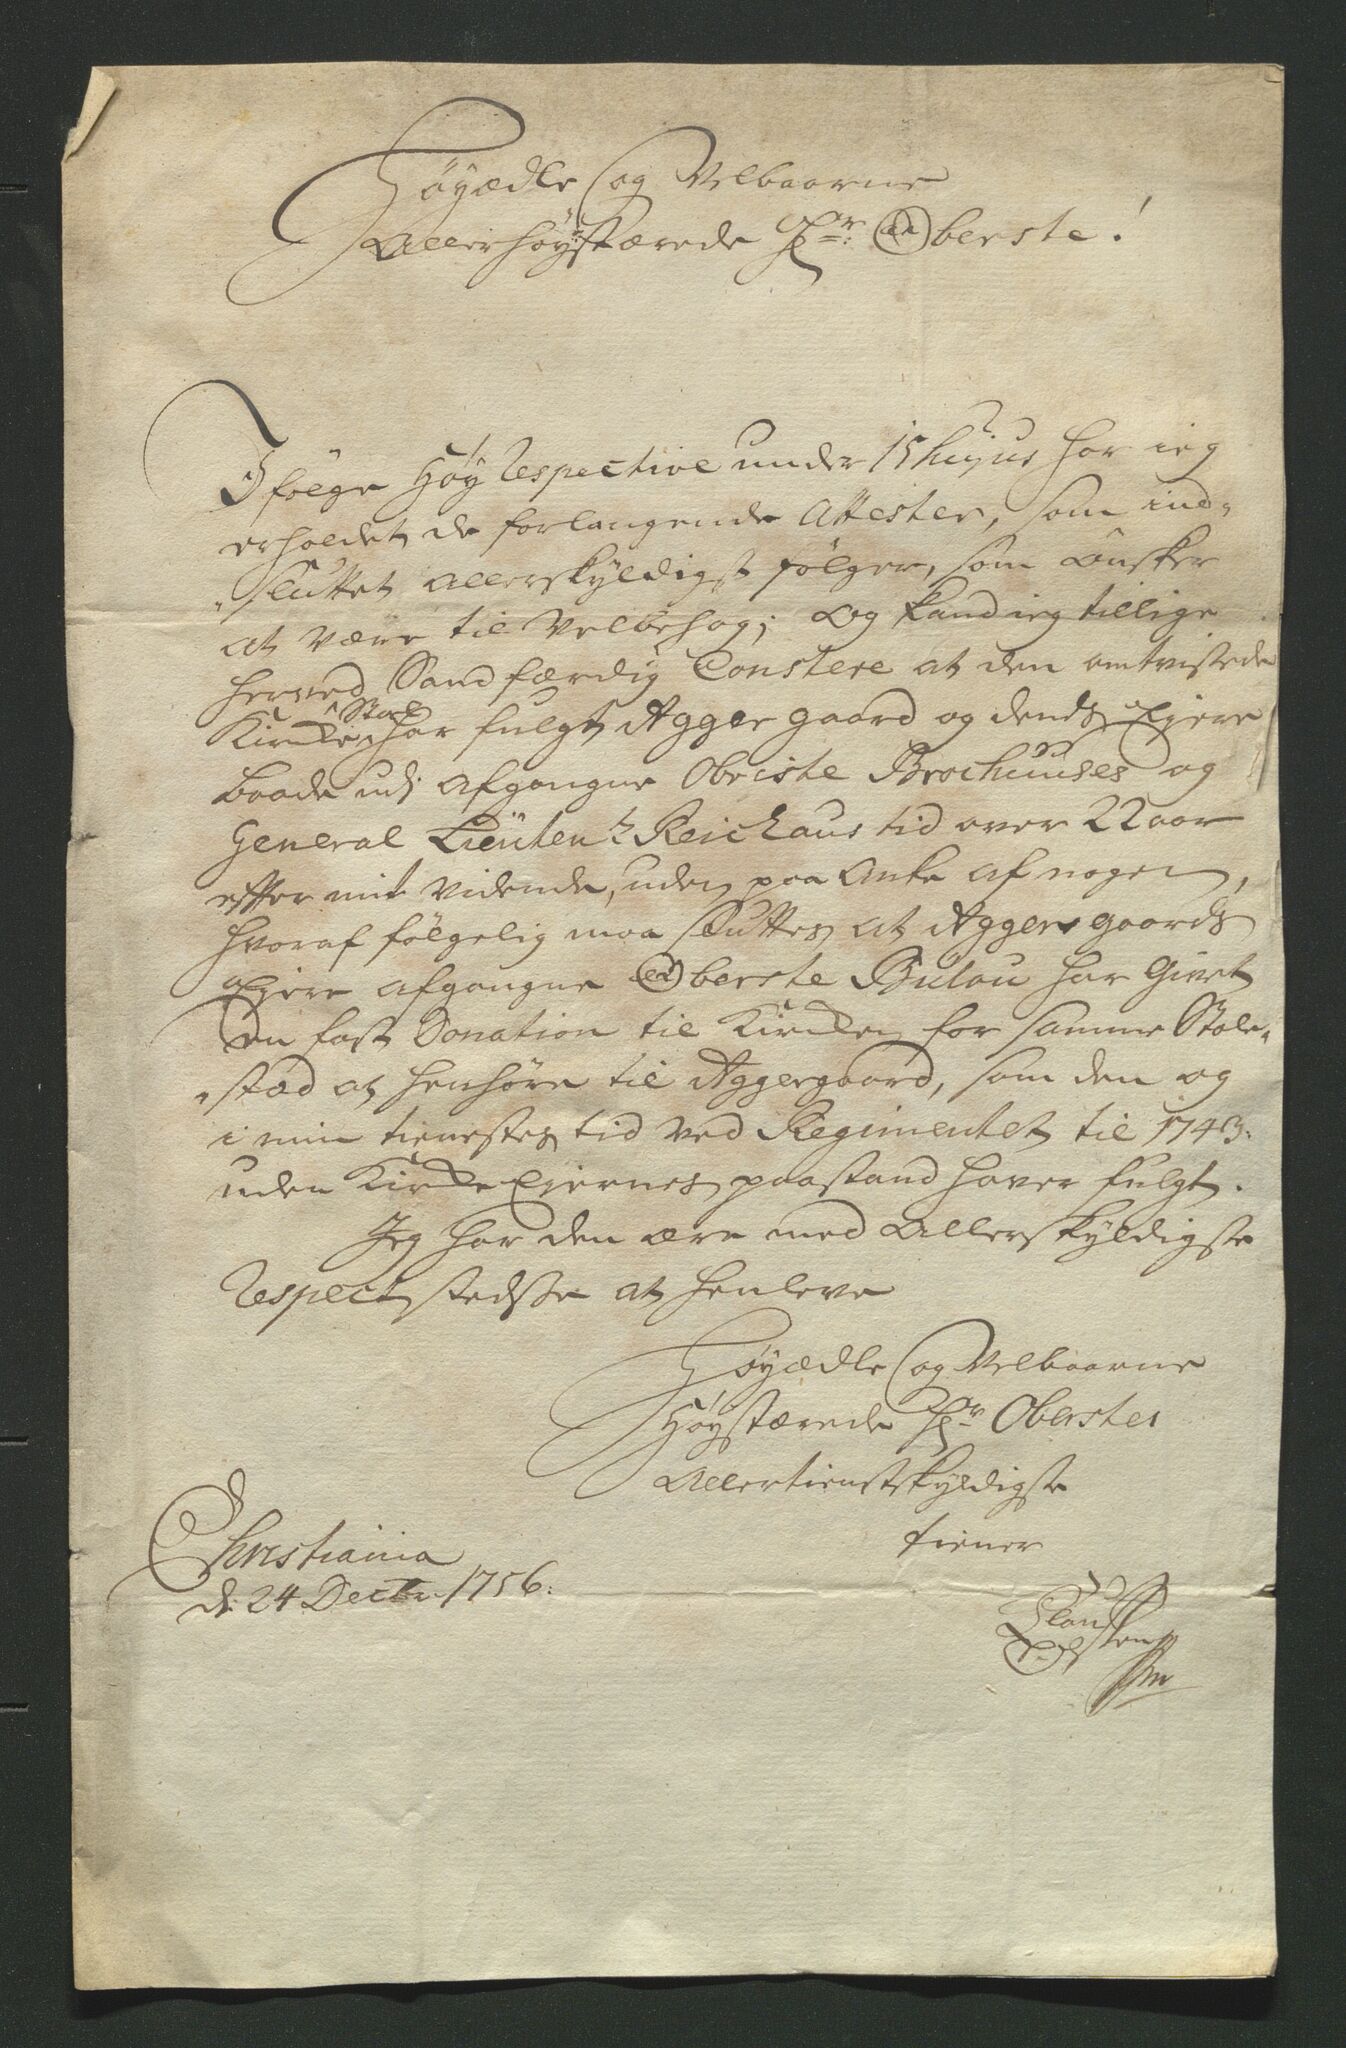 Høyædle og Velbaarne
Allerhøystærede Hr: Oberste!
Ifølge Høy Respective under 15 hujus har ieg
erholdet de forlangende Attester, som ind-
sluttet allerskyldigst følger, som ønsker
at være til Velbehag; og kand ieg tillige
herved Sandfærdig Constere at den omtvistede
Kirke Stoel har fulgt Aggergaard og dends Ejere
baade udi afgangne Obriste Brochuuses og
General Lieutent Reichaus tid over 22 aar
efter mit Vidende, uden paa Anke af nogen,
hvoraf følgelig maa sluttes at Aggersgaards
Ejere afgangne Oberste Bulau har Givet
en fast Donation til Kirken for samme Stole-
stæd at henhøre til Aggergaard, som den og
i min tienestes tid ved Regimentet til 1743:
uden Kirke Ejernes paastand haver fulgt.
Jeg har den ære med Allerskyldigste
Respect stedsse at henleve
Høyædle og Velbaarne
Høystærede Hr Oberstes
Allertienstskyldigste
tiener
Christiania
d: 24 Decbr. 1756:
Claus